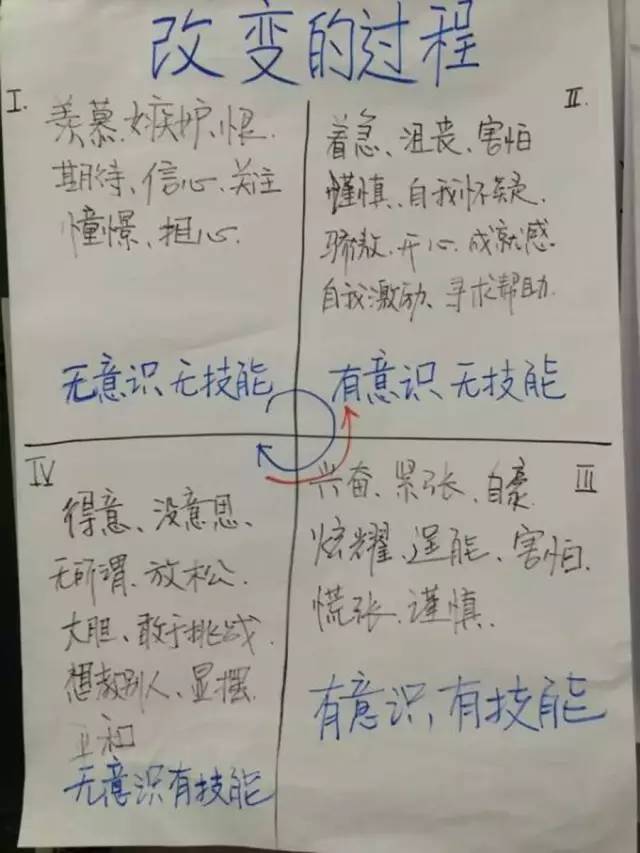 改变的过程
I.
羡慕、嫉妒、恨、
期待、信心、关注
憧憬、担心.
无意识、无技能
II.
着急、沮丧、害怕
谨慎、自我怀疑.
骄傲、开心、成就感.
自我激励、寻求帮助.
有意识、无技能
III
兴奋、紧张、自豪
炫耀、逞能、害怕.
慌张、谨慎.
有意识、有技能
IV
得意、没意思、
无所谓、放松.
大胆、敢于挑战.
想教别人、显摆.
无意识有技能